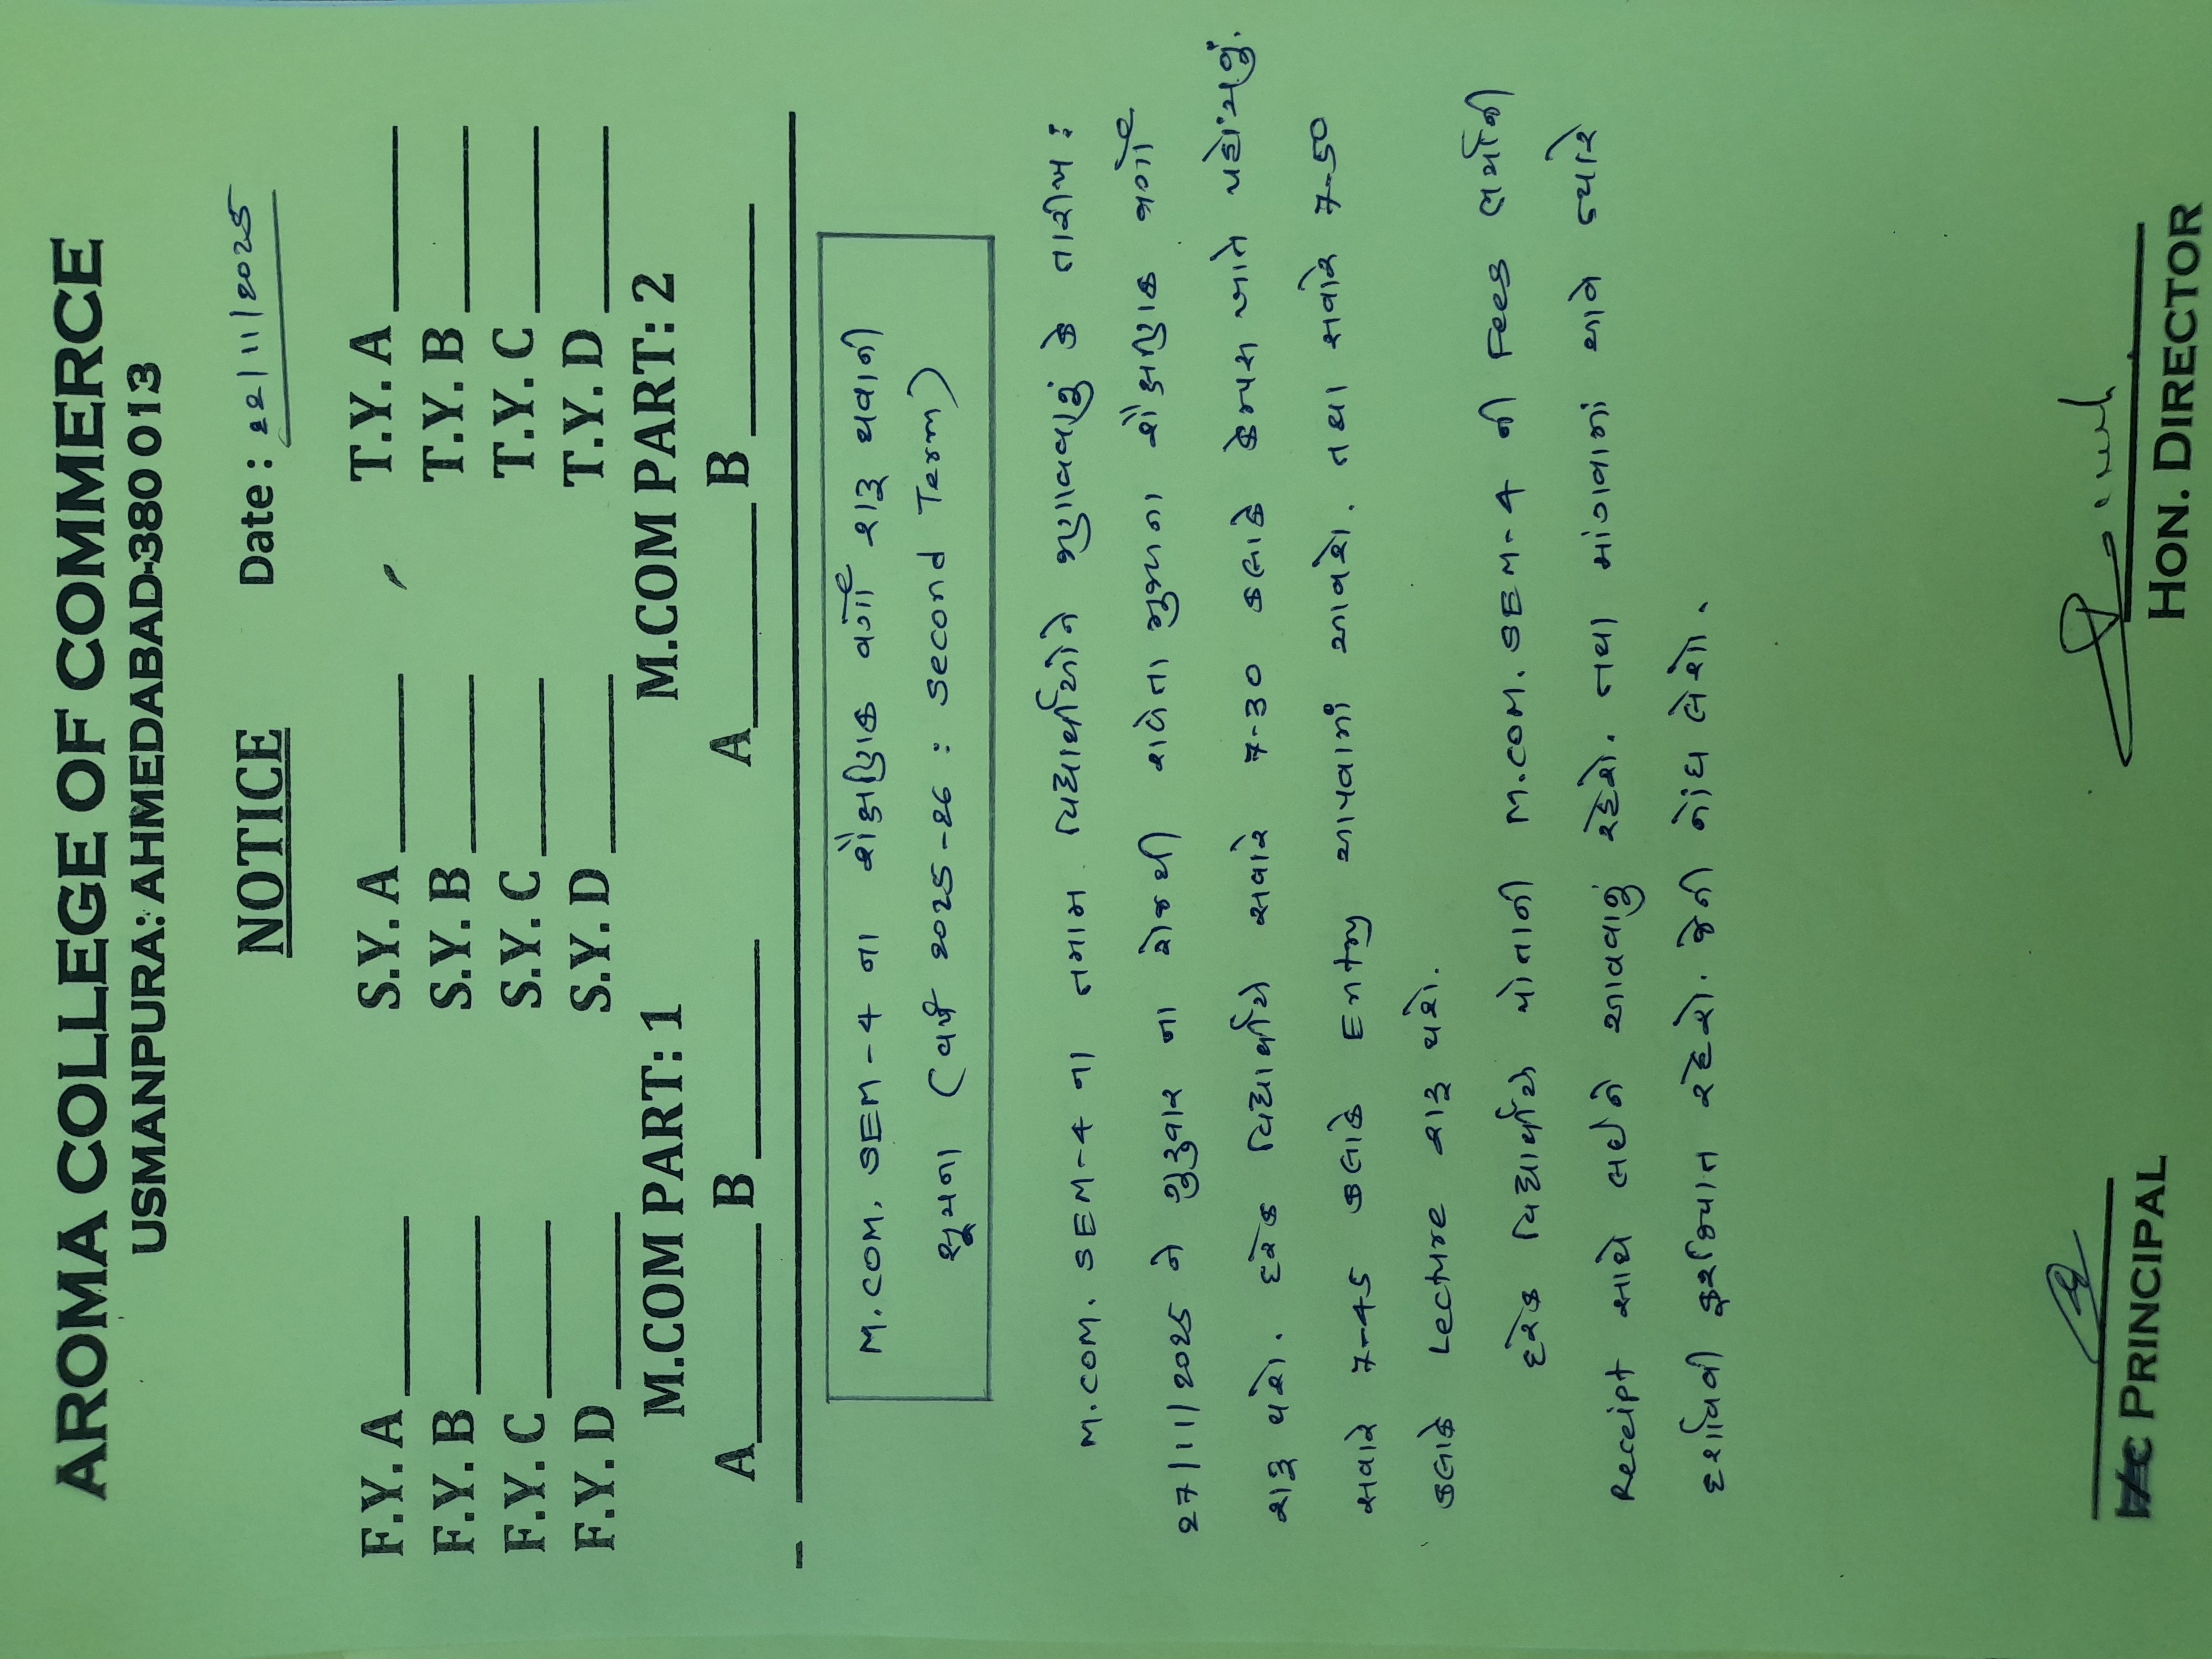 AROMA COLLEGE OF COMMERCE
USMANPURA: AHMEDABAD-380 013
NOTICE Date: ૨૨/૧૧/૨૦૨૫
F.Y. A S.Y. A T.Y. A
F.Y. B S.Y. B T.Y. B
F.Y. C S.Y. C T.Y. C
F.Y. D S.Y. D T.Y. D
M.COM PART: 1 M.COM PART: 2
A B A B
M.COM. SEM-4 ના શૈક્ષણિક વર્ગો શરૂ થવાની
સૂચના (વર્ષ ૨૦૨૫-૨૬ : Second Term)
M.COM. SEM-4 ના તમામ વિદ્યાર્થીઓને જણાવવાનું કે તારીખ :
૨૭/૧૧/૨૦૨૫ ને ગુરુવાર ના રોજથી રાબેતા મુજબના શૈક્ષણિક વર્ગો
શરૂ થશે. દરેક વિદ્યાર્થીએ સવારે 7-30 કલાકે કેમ્પસ ખાતે પહોંચવું.
સવારે 7-45 કલાકે Entry આપવામાં આવશે. તથા સવારે 7-50
કલાકે Lecture શરૂ થશે.
દરેક વિદ્યાર્થીએ પોતાની M.COM. SEM-4 ની Fees ભર્યાની
Receipt સાથે લઈને આવવાનું રહેશે. તથા માંગવામાં આવે ત્યારે
દર્શાવવી ફરજિયાત રહેશે. જેની નોંધ લેશો.
I/C PRINCIPAL HON. DIRECTOR